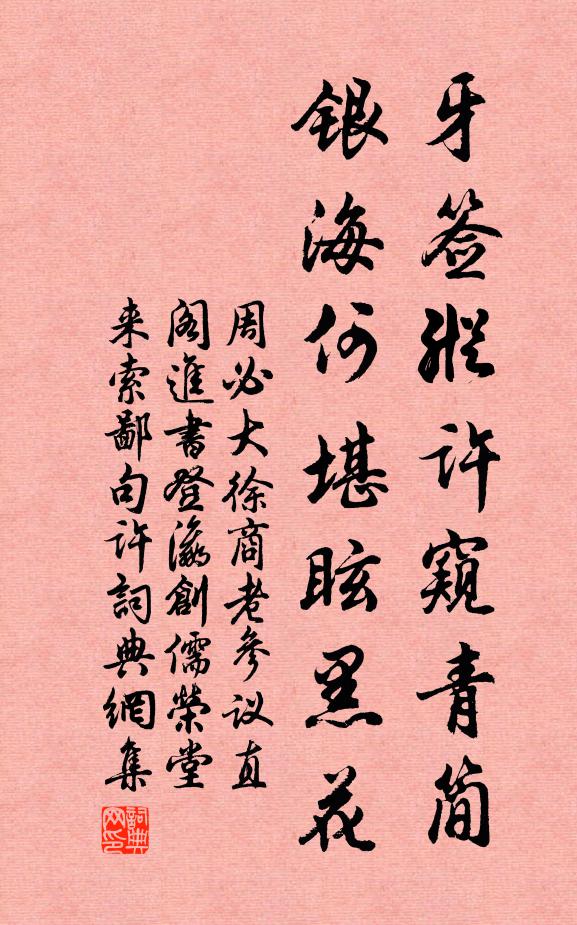 牙签縱许窺青简
银海何堪眩黑花
周必大徐商老参议直
阁進書登瀛創儒榮堂
来索鄙句许詞典網集
詞典网印